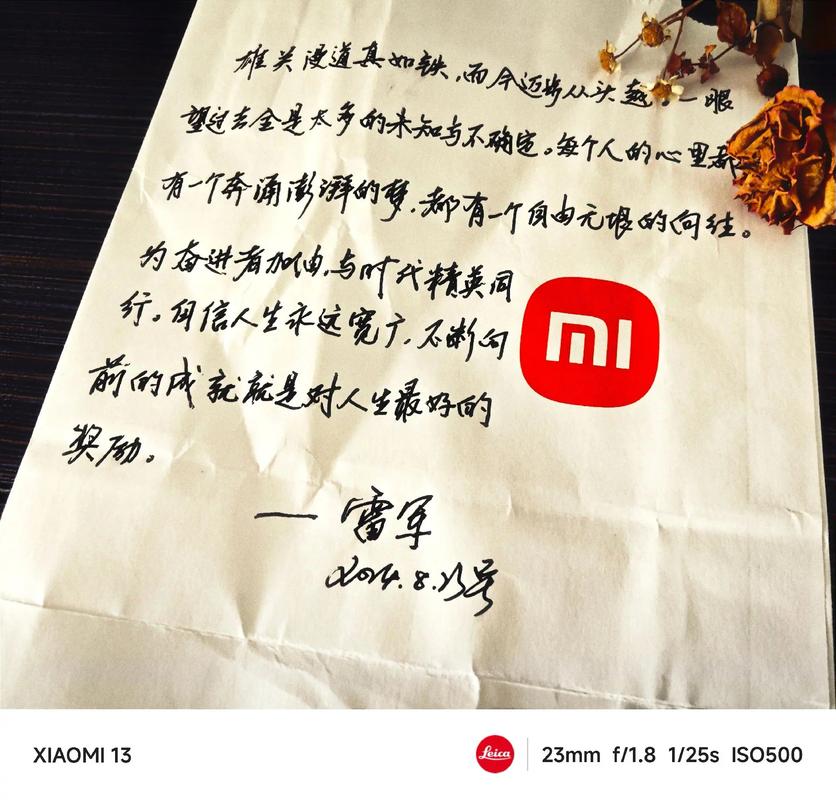 雄关漫道真如铁，而今迈步从头越。一眼
望过去全是太多的未知与不确定。每个人的心里都
有一个奔涌澎湃的梦，都有一个自由无垠的向往。
为奋进者加油，与时代精英同
行。自信人生永远宽广，不断向
前的成就就是对人生最好的
奖励。
— 雷军
2024.8.23号
mi
XIAOMI 13
Leica
23mm f/1.8 1/25s ISO500